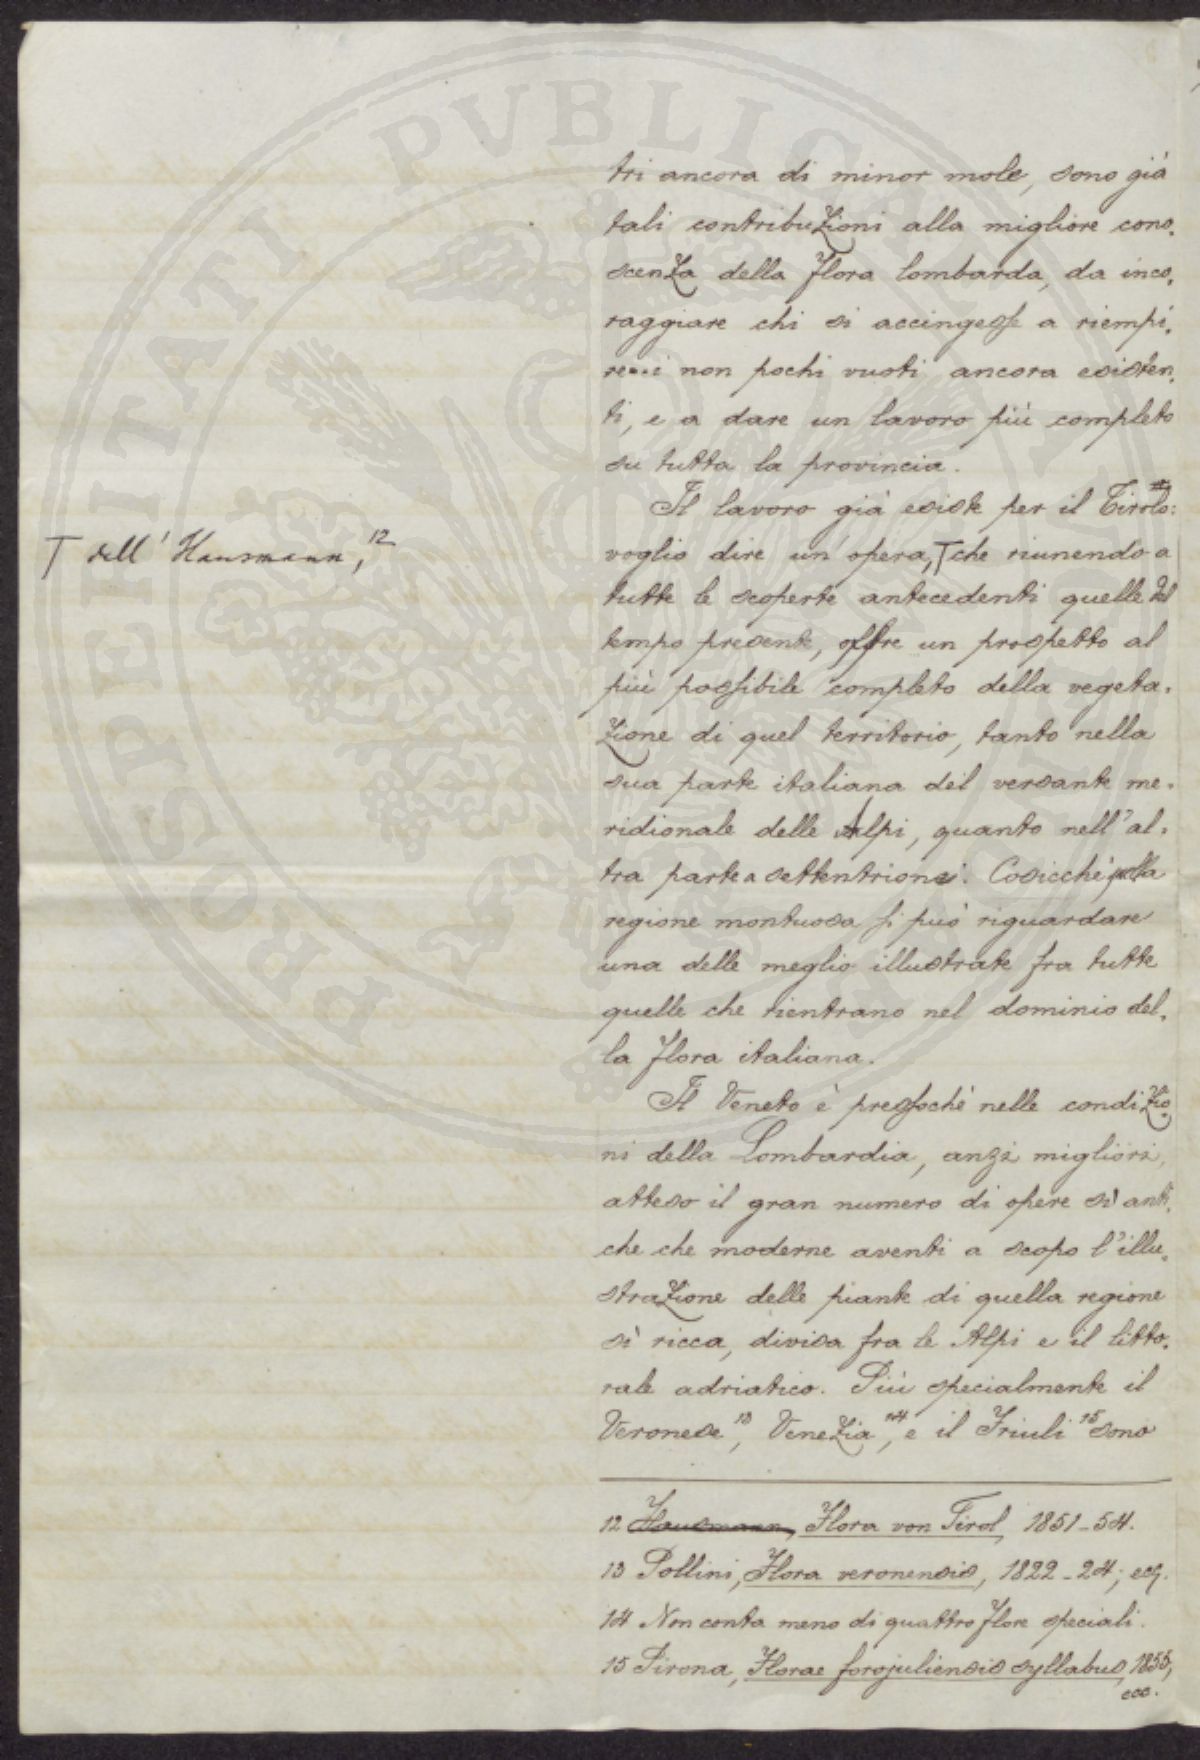 tri ancora di minor mole, sono già
tali contribuzioni alla migliore cono-
scenza della flora lombarda, da inco-
raggiare chi si accingesse a riempi-
re non pochi vuoti ancora esisten-
ti, e a dare un lavoro più completo
su tutta la provincia.
Il lavoro già esiste per il Tirolo:
T dell' Hausmann,12
voglio dire un' opera, T che riunendo a
tutte le scoperte antecedenti quelle del
tempo presente, offre un prospetto al
più possibile completo della vegeta-
zione di quel territorio, tanto nella
sua parte italiana del versante me-
ridionale delle Alpi, quanto nell' al-
tra parte a settentrione. Cosicchè quella
regione montuosa si può riguardare
una delle meglio illustrate fra tutte
quelle che rientrano nel dominio del-
la flora italiana.
Il Veneto è pressochè nelle condizio-
ni della Lombardia, anzi migliori,
atteso il gran numero di opere sì anti-
che che moderne aventi a scopo l'illu-
strazione delle piante di quella regione
sì ricca, divisa fra le Alpi e il litto-
rale adriatico. Più specialmente il
Veronese13, Venezia14, e il Friuli15 sono
12 Hausmann, Flora von Tirol, 1851-54.
13 Pollini, Flora veronensis, 1822-24; ecc.
14 Non conta meno di quattro flore speciali.
15 Pirona, Florae forojuliensis syllabus, 1855,
ecc.
PROSPERITATI PVBLICAE